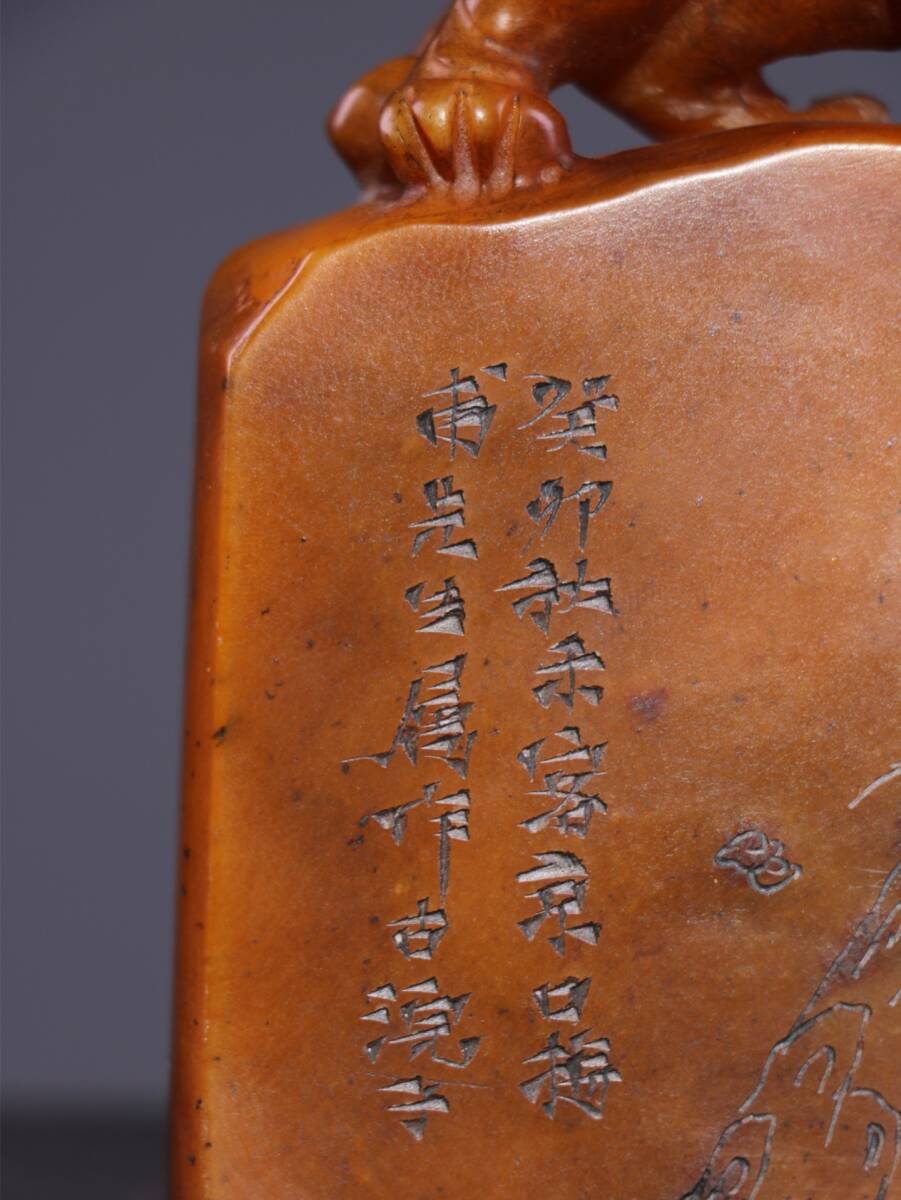 癸卯秋余客京口梅
甫先生属作古浣子